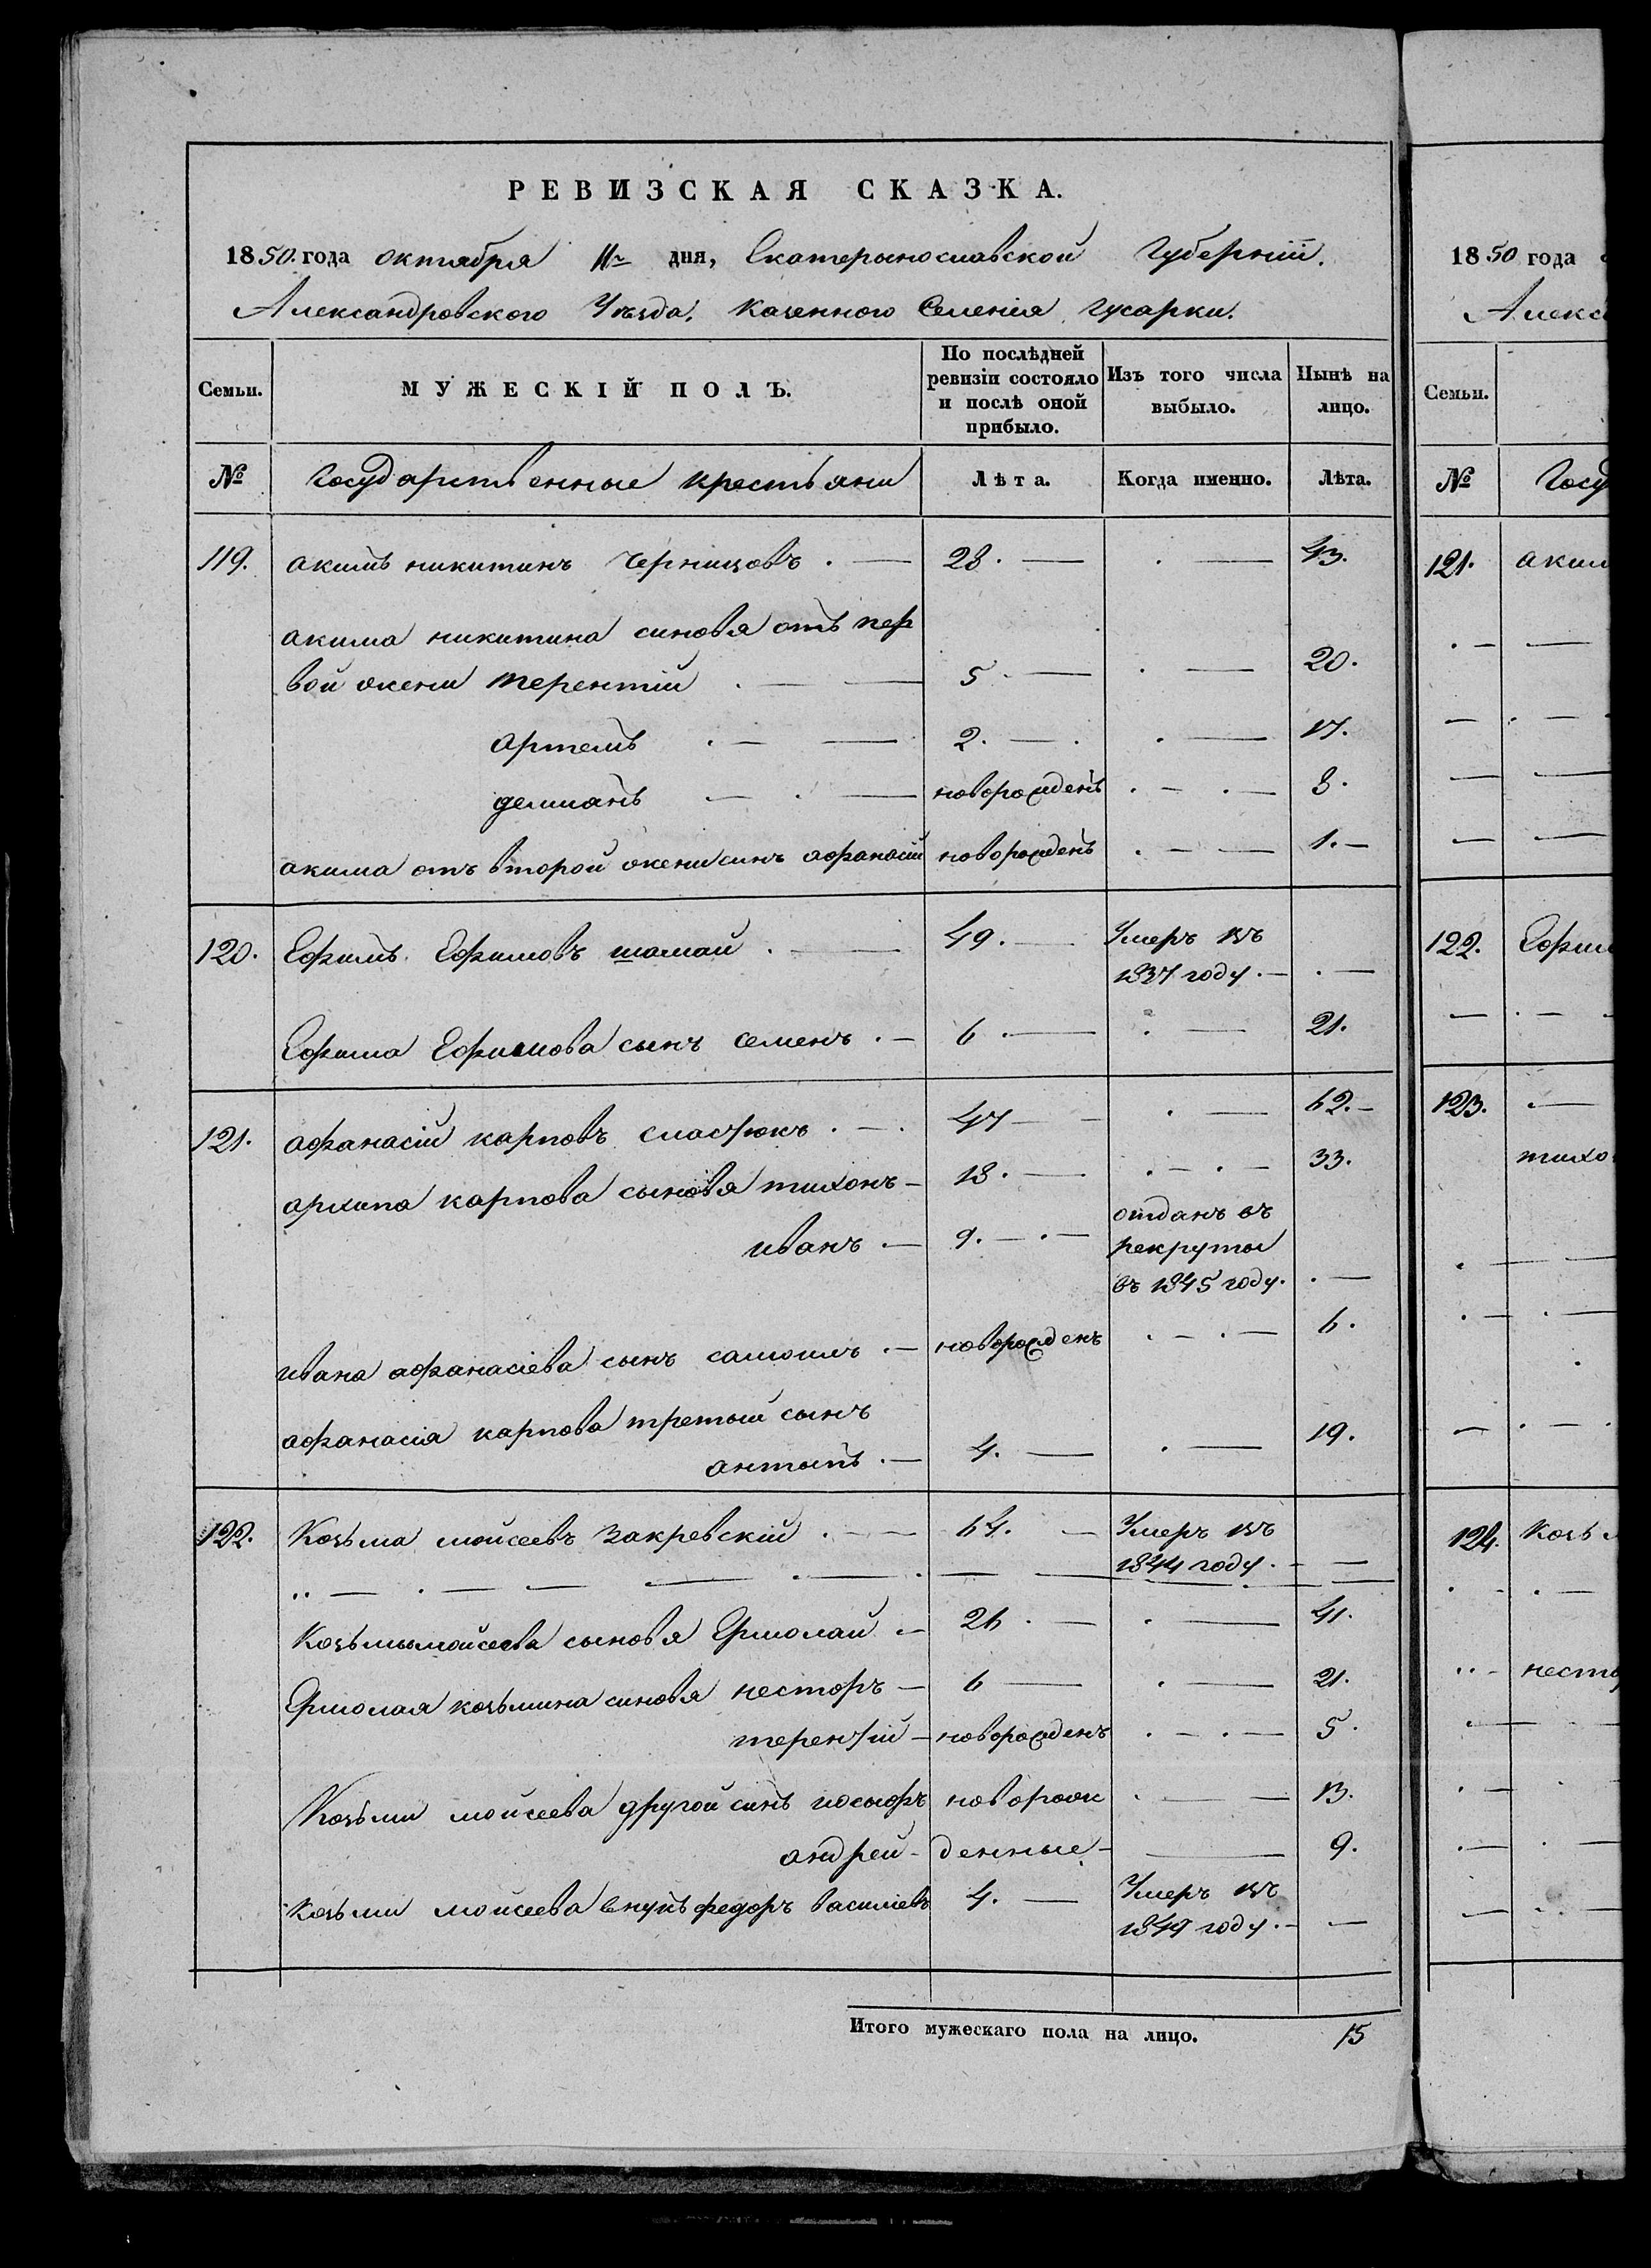 РЕВИЗСКАЯ СКАЗКА.
1850. года октября 11го дня, Екатерынославской Губерніи.
Александровского Уѣзда. Казенного Селенія гусарки.
Семьи. МУЖЕСКІЙ ПОЛЪ. По послѣдней ревизіи состояло и послѣ оной прибыло. Изъ того числа выбыло. Нынѣ на лицо.
№ Государственные крестьяни Лѣта. Когда именно. Лѣта.
119. акимъ никитинъ Черницовъ . — 28. — . — 43.
акима никитина синовя отъ пер
вой жени терентій . — — 5. — . — 20.
артемъ . — — 2. — . . — 17.
демианъ — . — новорожденъ . — . — 8.
акима отъ второй жени синъ афанасій новорожденъ . — — 1. —
120. Ефимъ Ефимовъ шамай . — 49. — Умеръ въ
1837 году. — . —
Ефима Ефимова сынъ семенъ . — 6 . — . — 21.
121. афанасій карповъ сластюкъ . — . 47 — — . — 62. —
архипа карпова сыновя тихонъ — 18. — . — . — 33.
иванъ . — 9. — . — отданъ въ
рекруты
въ 1845 году. . —
ивана афанасіева сынъ самоилъ . — новорожденъ . — . — 6.
афанасія карпова третый сынъ
антыпъ . — 4. — . — 19.
122. Козьма мойсеевъ Закревскій . — — 64. — Умеръ въ
1844 году. — —
Козьмы мойсеева сыновя Ермолай . — 26 . — . — 41.
Ермолая козьмина синовя несторъ — 6 — . — 21.
терентій — новорожденъ . — . — 5.
Козьми мойсеева другой синъ иосыфъ новорож . — — 13.
андрей — денные — — 9.
козьми мойсеева внукъ федоръ василіевъ 4. — Умеръ въ
1849 году. — —
Итого мужескаго пола на лицо. 15
1850 года
Алекса
Семьи.
№ Госу
121. аким
122. Ефим
123. . —
тихо
124. козьм
нест